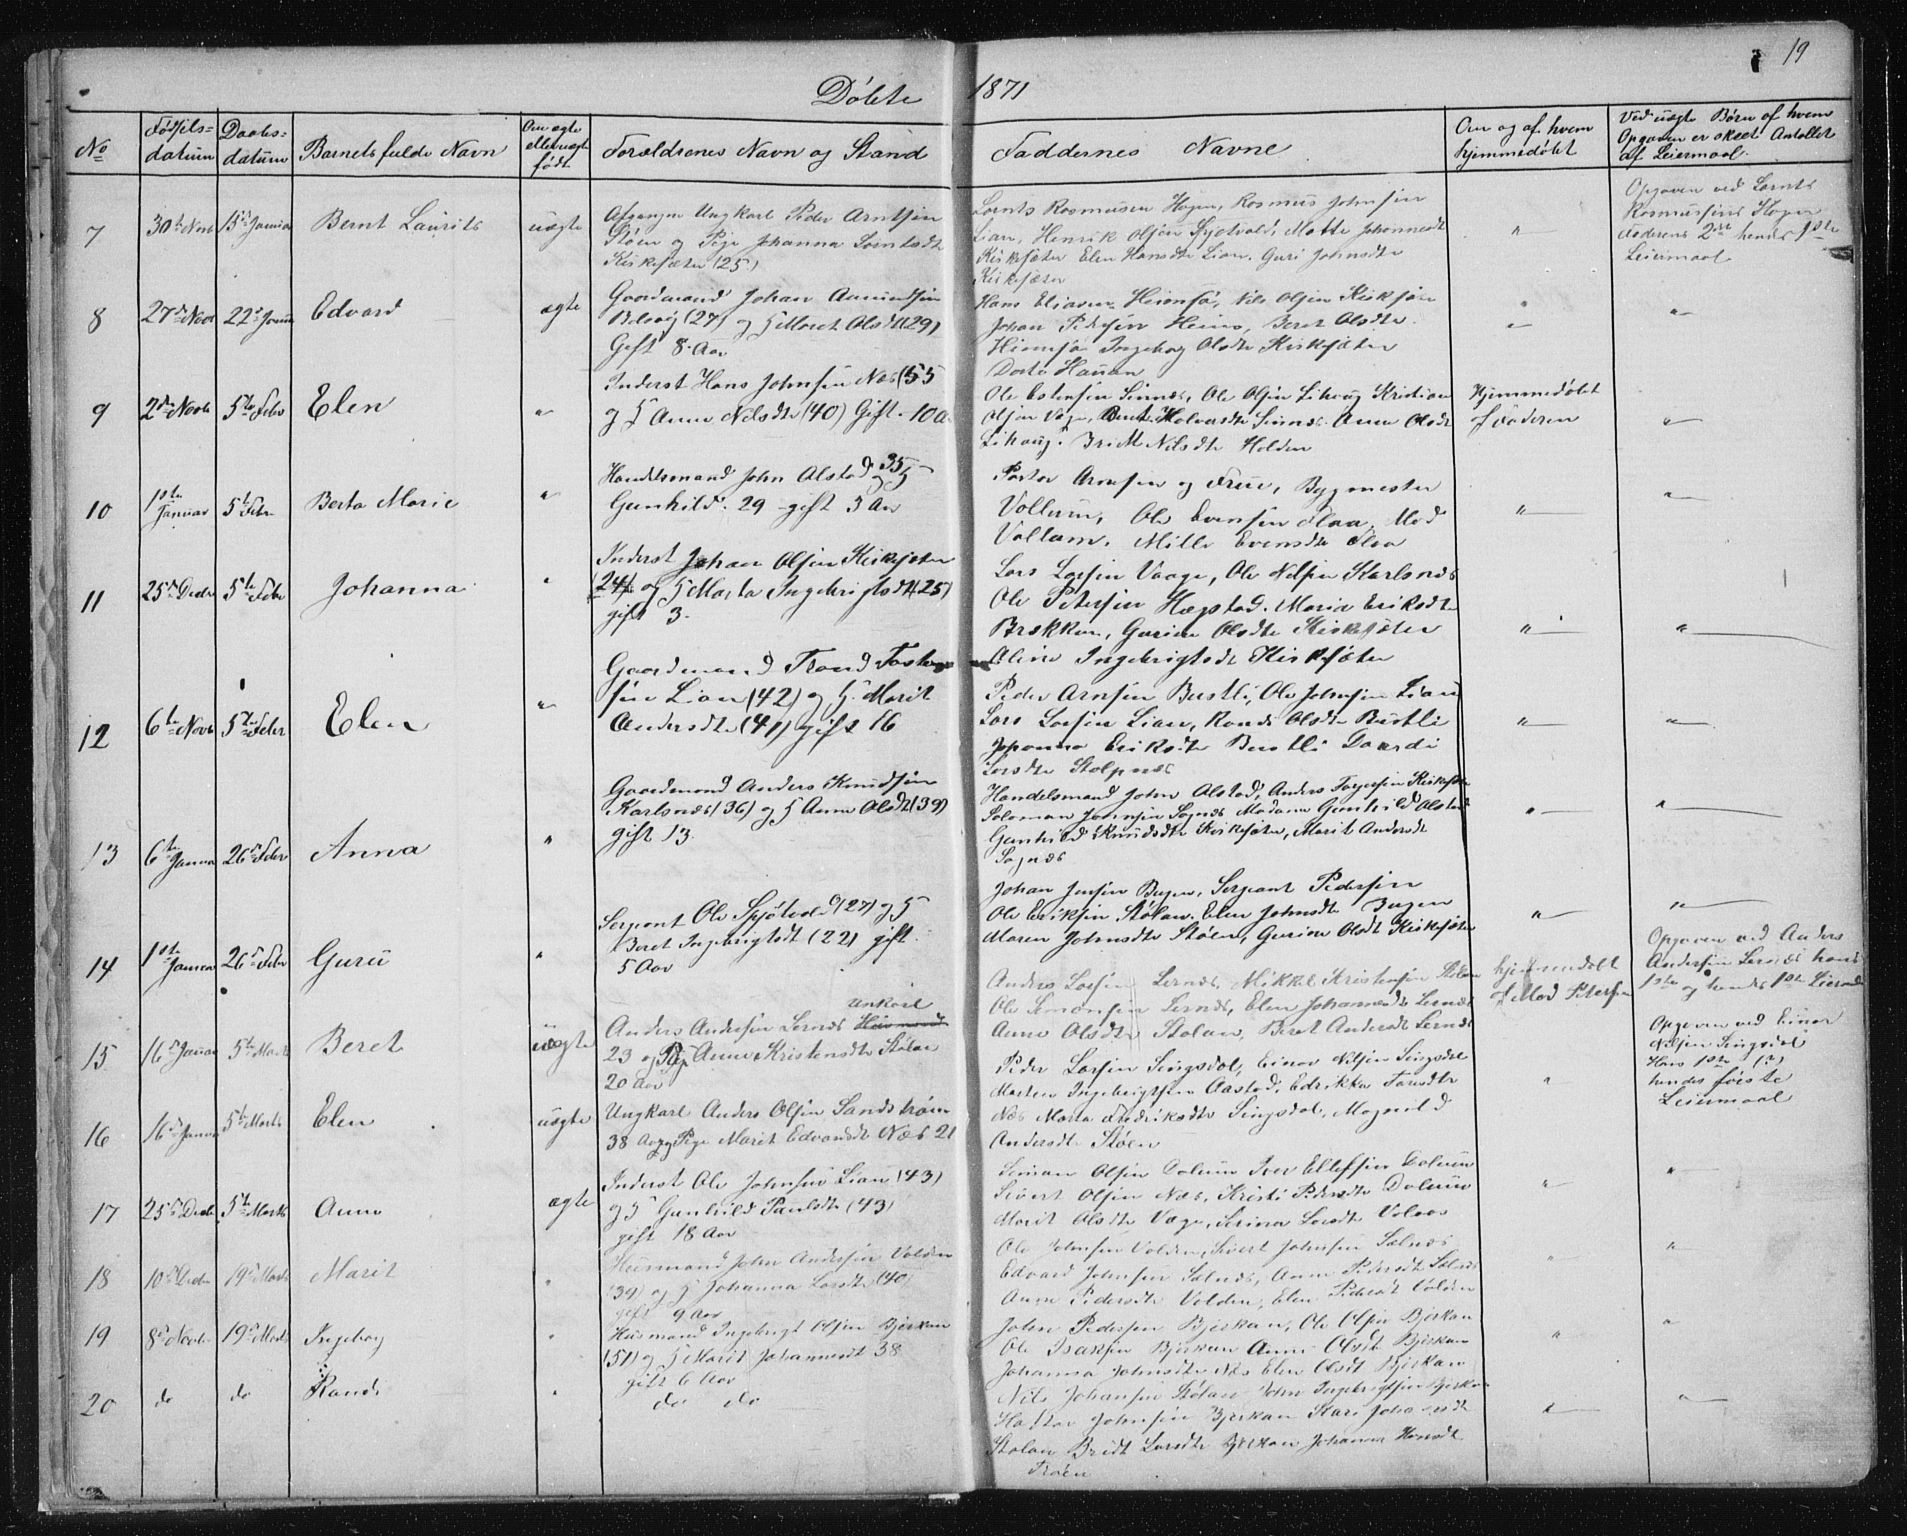 19
Döbte 1871
No
Fødsels-
datum
Daabs-
datum
Barnets fulde Navn
Om ægte
eller uægte
født
Forældrenes Navn og Stand
Faddernes Navne
Om og af hvem
hjemmedøbt
Ved uægte Børn af hvem
Opgaven er skeet Antallet
af Leiermaal.
7
30te Novb
15de Januar
Bernt Laurits
uægte
Ungkarl Peder Arntsen
Støen og Pige Johanna
Kirksæter (25)
Lornts Rasmussen Hagen, Rasmus Johnsen
Lian, Henrik Olsen
Kirksæter Elen Hansdtr Lian. Guri Johnsdtr
Kirksæter
"
Opgaven ved Lornts
Rasmussens Hagen
Faderens 2det hendes 1ste
Leiermaal
8
27de Novb
22de Januar
Edvard
ægte
Gaardmand Johan Amundsen
Belsvig (27) og H Maret Olsdt (29)
Gift 8 Aar
Hans Eliasen Heimsjø, Nils Olsen
Johan Pedersen Heims, Beret Olsdtr
Heimsjø Ingebog Olsdtr Kirksæter
Dorte Hassan
"
"
9
2den Novb
5te Febr
Elen
"
Inderst Hans Johnsen Næs (55
og H Anne Nilsdtr (40) Gift 10 a
Ole Estensen Sinnes, Ole Olsen Lihaug Kristian
Olsen Vage, Berit Halvorsdtr Sinnes Anne Olsdt
Lihaug. Nilsdtr Holden
Hjemmedøbt
af Faderen
"
10
1ste
Januar
5te Febr
Berta Marie
"
Handelsmand John Alstad 35 og H
Gunhild. 29 gift 3 Aar
Pastor Arnesen og Frue, Bygmester
Vollum, Ole Evensen Flaa, Mad
Vollum. Mille Evensdtr Flaa
"
"
11
25de Decbr
5te Febr
Johanna
"
Inderst Johan Olsen Kirksæter
(24) og H Marta Ingebrigtsdt (25)
gift 3.
Lars Larsen Vaage, Ole Nilsen Karlsnes
Ole Petersen Hægstad. Maria Eriksdtr
Brækken, Gurine Olsdtr Kirksæter
Aline Ingebrigtsdt Kirksæter
"
"
12
6te Novb
5te Febr
Elen
"
Gaardmand Trond
sen Lian (42) og H. Marit
Andersdtr (41) gift 16
Peder Arnsen Bustli, Ole Johnsen Lian
Lars Larsen Lian, Randi Olsdtr Bustli
Johanna Eriksdtr Bustli Taardi
Larsdtr Stolpnes
"
"
13
6te Januar
26de Febr
Anna
"
Gaardmand Anders Knudsen
Karlsnes (36) og H Anne Olsdt (39)
gift 13
Handelsmand John Alstad, Anders Kirksæter
Soloman Johnsen Sognes Madame Gunhild Alstad
Gunhild Knudsdtr Kirksæter, Marit Andersdt
Sognes
"
"
14
1ste Januar
26de Febr
Guru
"
Sergeant Ole Spjøtvold (27) og H
Beret Ingebrigtsdt (22) gift
5 Aar
Johan Jensen Bugen, Sergeant Pedersen
Ole Eriksen Stølan. Elen Johnsdtr Bugen
Maren Johnsdtr Støen, Gurine Olsdt Kirksæter
"
"
15
16de Januar
5te Marts
Beret
uægte
Unkarl
Anders Andersen Lernes Huusmand
23 og Pige Anne Kristensdtr Stølan
20 Aar
Anders Larsen Lernes, Mikkel Kristensen Stølan
Ole Semonsen Lernes, Elen Johannesdtr Lernes
Anne Olsdtr Stølan, Beret Andersdt Lernes
hjemmedøbt
af Mad Petersen
Opgaven ved Anders
Andersen Lernes hans
1ste og hendes 1ste Leiermaal
16
16de Januar
5te Marts
Elen
uægte
Ungkarl Anders Olsen Sandstrøm
38 Aar og Pige Marit Edvardsdt Næs 21
Peder Larsen Singsdal, Einar Nilsen Singsdal
Morten Ingebrigtsen Aastad, Edrikka
Næs Marta Fredriksdtr Singsdal, Magnild
Andersdtr Støen
"
Opgaven ved Einar
Nilsen Singsdal
Hans 1ste (?)
hendes første
Leiermaal
17
25de Decbr
5te Marts
Anne
ægte
Inderst Ole Johnsen Lian (43)
og H Gunhild Paulsdtr (43)
gift 18 Aar
Simon Olsen Dolum Iver Ellefsen Dolum
Sivert Olsen Næs, Kristi Pedersdtr Dolum
Marit Olsdtr Vage, Serina Larsdtr
"
"
18
10de Decbr
19de Marts
Marit
"
Huusmand John Andersen Volden
(39) og H Johanna Larsdtr (40)
gift 9 Aar
Ole Johnsen Volden, Sivert Johnsen Salnes
Edvard Johnsen Salnes, Anne Pedersdtr Salnes
Anne Pedersdtr Volden, Elen Pedersdt Volden
"
"
19
8de Novb
19de Marts
Ingebog
"
Husmand Ingebrigt Olsen Bjerkan
(51) og H Marit Johannesdt 38
gift 6 Aar
John Pedersen Bjerkan, Ole Olsen Bjerkan
Ole Isaksen Bjerkan Anne Olsdt Bjerkan
Johanna Johnsdtr Næs Elen Olsdt Bjerkan
"
"
20
do
do
Randi
"
do do
Nils Johansen Stølan John Ingebrigtsen Bjerkan
Johnsen Bjerkan Kari
Stølan Larsdtr Bjerkan Johanna Hansdt
Trøen
"
"